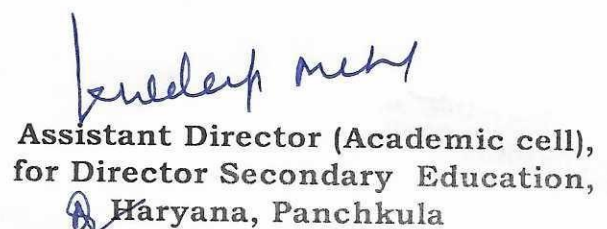 Kuldeep Mehta
Assistant Director (Academic cell),
for Director Secondary Education,
Haryana, Panchkula